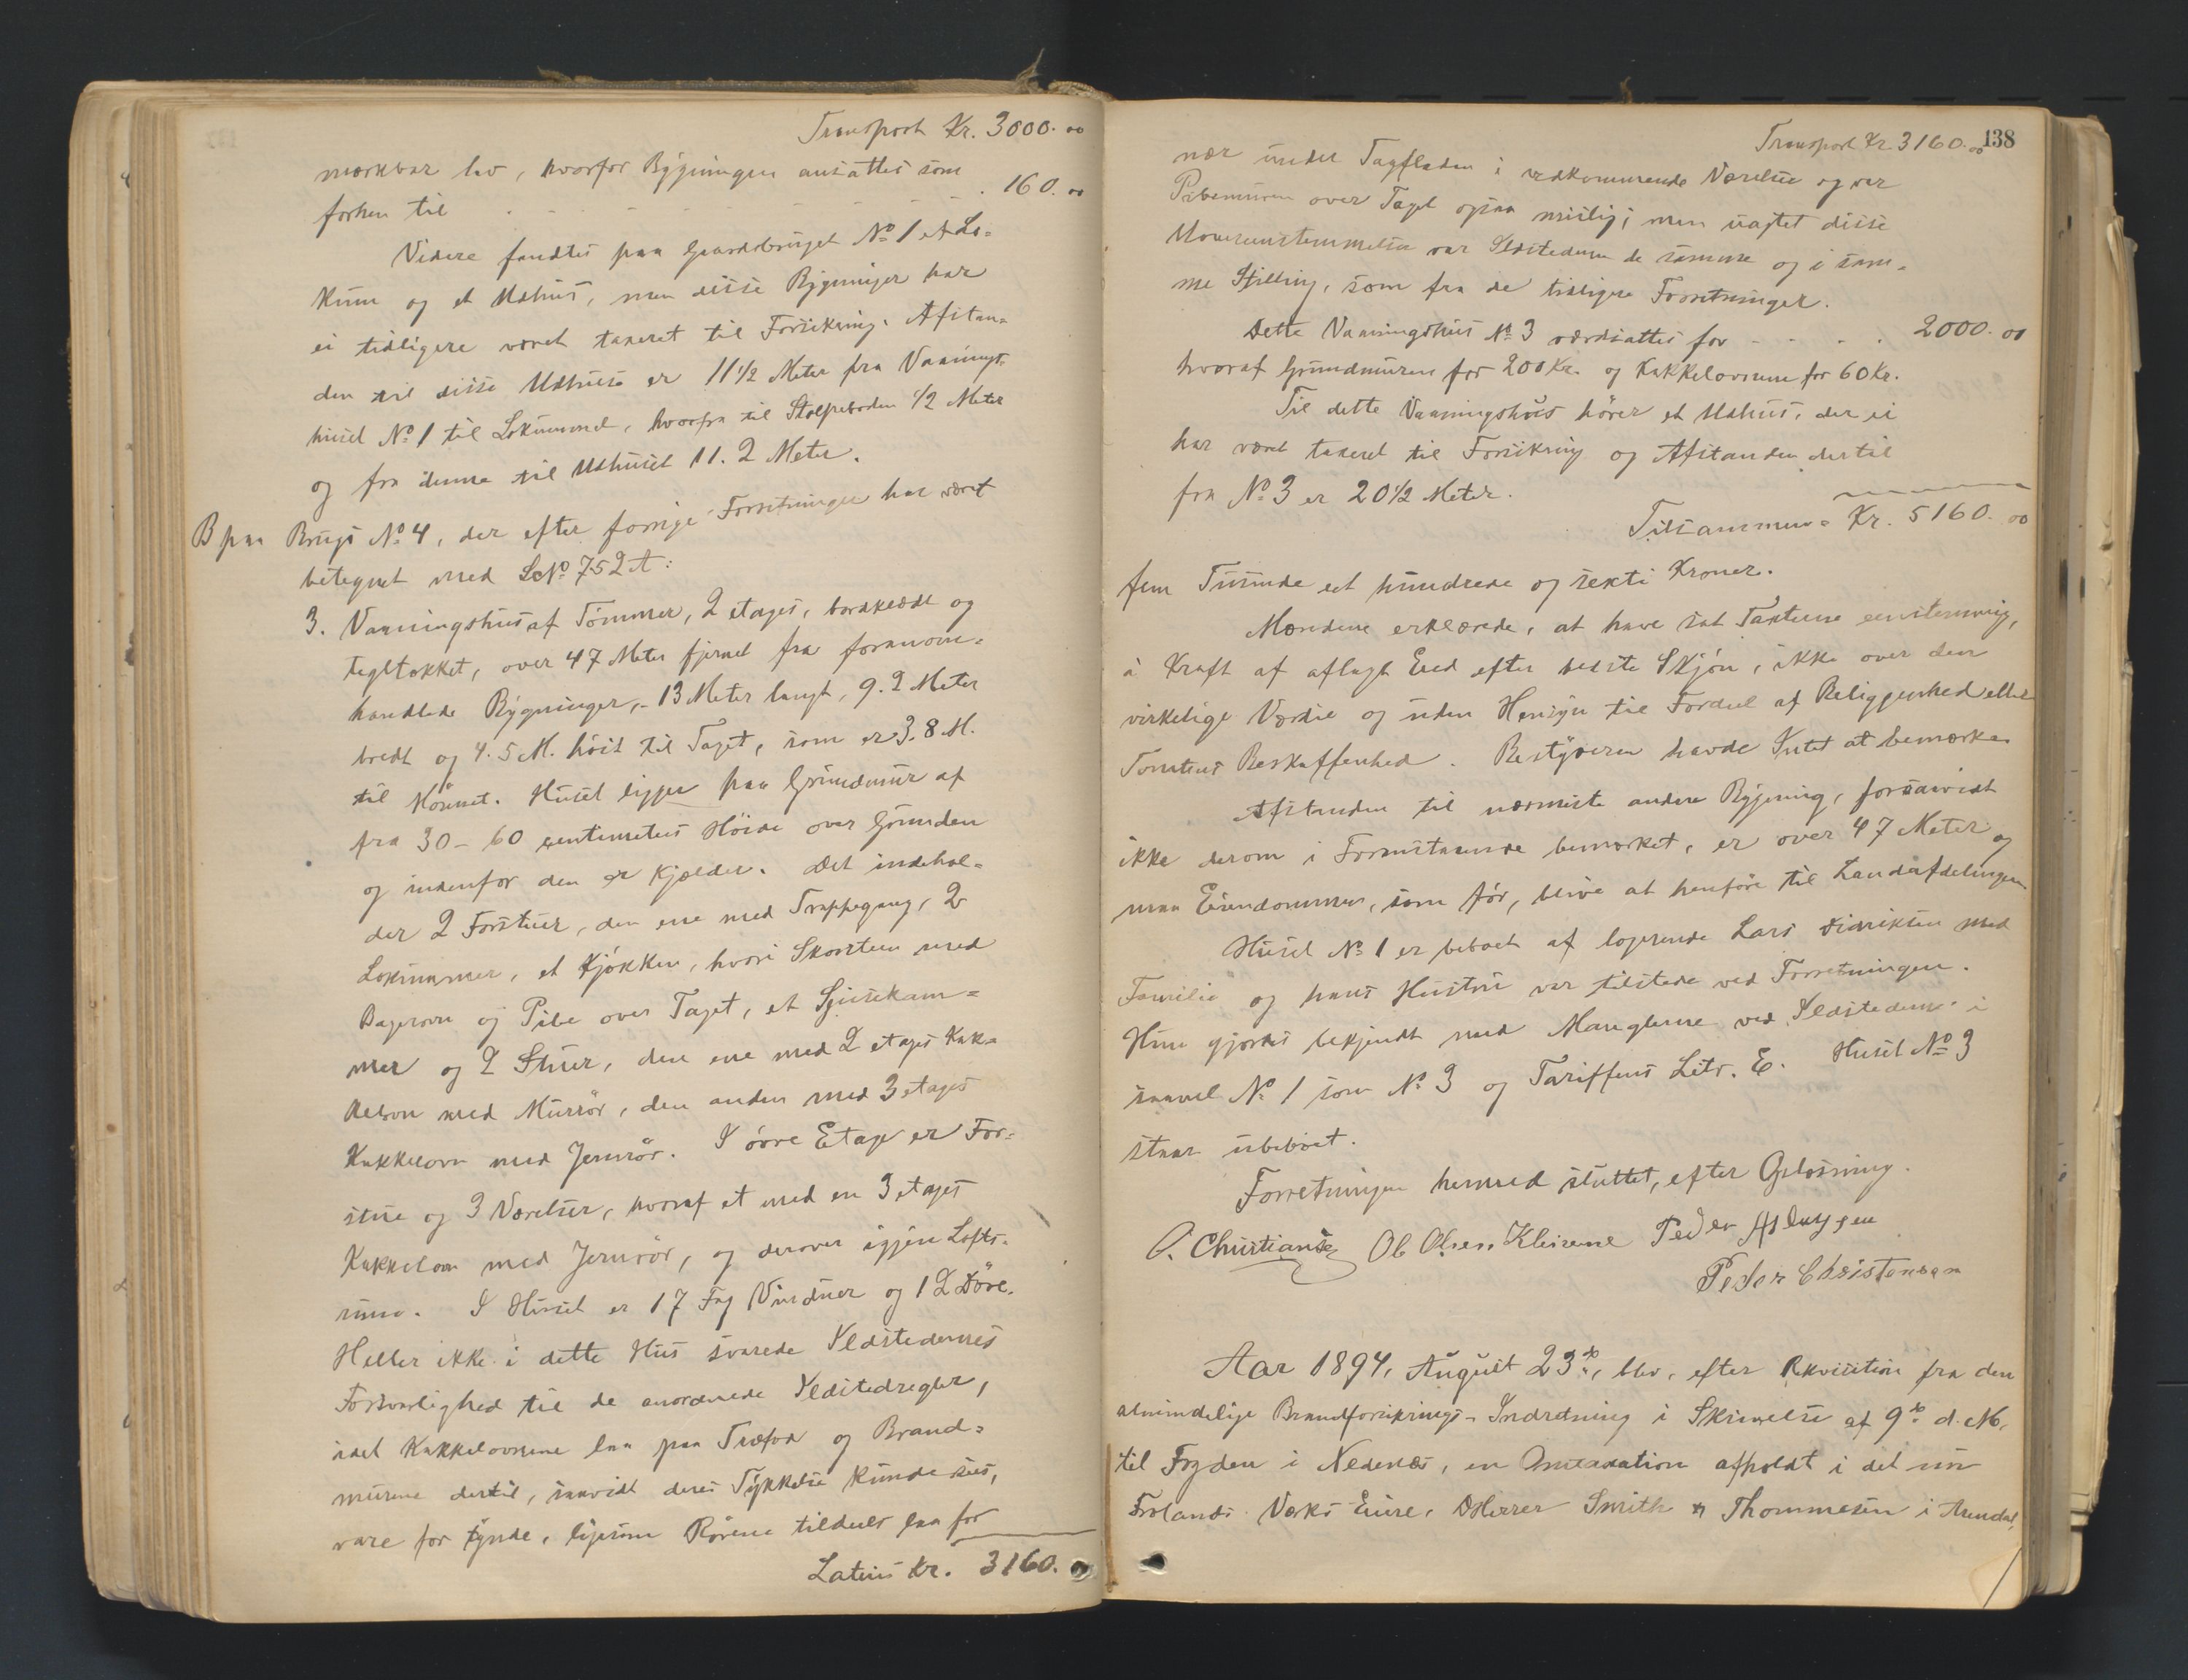 Transport Kr. 3000.00
mærkbar lav, hvorfor Bygningen ansattes som
forhen til . . . . . . 160.00
Videre fandtes paa Gaardsbruget No 1 et Lo-
kum og et Udhus, men disse Bygninger har
ei tidligere været taxeret til Forsikring. Afstan-
den til disse Udhuse er 11 1/2 Meter fra Vaanings-
huset No 1 til Lokummet, hvorfra til Stolpeboden 1/2 Meter
og fra denne til Udhuset 11.2 Meter.
B paa Brugs No 4, der efter forrige Forretninger har været
betegnet med LNo 752A:
3. Vaaningshus af Tømmer, 2 etages, bordklædt og
tegltækket, over 47 Meter fjernet fra forannom-
handlede Bygninger, - 13 Meter langt, 9.2 Meter
bredt og 4.5 M. høit til Taget, som er 3.8 M.
til Mønnet. Huset ligger paa Grundmur af
fra 30 - 60 centimeters Høide over Grunden
og indenfor den er Kjælder. Det indehol-
der 2 Forstuer, den ene med Trappegang, 2
Lokummer, et Kjøkken, hvori Skorsten med
Bagerovn og Pibe over Taget, et Spisekam-
mer og 2 Stuer, den ene med 2 etages Kak-
kelovn med Murrør, den anden med 3 etages
Kakkelovn med Jernrør. I øvre Etage er For-
stue og 3 Værelser, hvoraf et med en 3 etages
Kakkelovn med Jernrør, og derover igjen Lofts-
rum. I Huset er 17 Fag Vinduer og 12 Døre.
Heller ikke i dette Hus svarede Ildstedernes
Forsvarlighed til de anordnede Ildstedregler,
idet Kakkelovnene laa paa Træfod og Brand-
murene dertil, saavidt deres Tykkelse kunde sees,
vare for tynde, ligesom Rørene tildeels laa for
Latus Kr. 3160.00
138
Transport Kr 3160.00
nær under Tagfladen i vedkommende Værelse og var
Pibemuren over Taget ogsaa mislig; men uagtet disse
Uoverensstemmelser var Ildstederne de samme og i sam-
me Stilling, som fra de tidligere Forretninger.
Dette Vaaningshus No 3 værdsattes for - - . . 2000.00
hvoraf Grundmuren for 200 Kr. og Kakkelovnene for 60 Kr.
Til dette Vaaningshus hører et Udhus, der ei
har været taxeret til Forsikring og Afstanden dertil
fra No 3 er 20 1/2 Meter.
Tilsammen = Kr. 5160.00
fem Tusinde eet hundrede og sexti Kroner.
Mændene erklærede, at have sat Taxterne eenstemmig,
i Kraft af aflagt Eed efter bedste Skjøn, ikke over den
virkelige Værdie og uden Hensyn til Fordeel af Beliggenhed eller
Tomtens Beskaffenhed. Bestyreren havde Intet at bemærke.
Afstanden til nærmeste anden Bygning, forsaavidt
ikke derom i Foranstaaende bemærket, er over 47 Meter og
maa Eiendommen, som før, blive at henføre til Landafdelingen.
Huset No 1 er beboet af logerende Lars Didriksen med
Familie og hans Hustru var tilstede ved Forretningen.
Hun gjordes bekjendt med Manglerne ved Ildstederne i
saavel No 1 som No 3 og Tariffens Litr. E. Huset No 3
staar ubeboet.
Forretningen hermed sluttet, efter Oplæsning.
O. Christiansen Ole Olsen Kleivene Peder Aslaksen
Peder Christensen
Aar 1894, August 23de, blev, efter Rekvisition fra den
almindelige Brandforsikrings-Indretning i Skrivelse af 9de d.M.
til Fogden i Nedenæs, en Omtaxation afholdt i det nu
Frolands Værks Eiere, DHerrer Smith & Thommesen i Arendal,